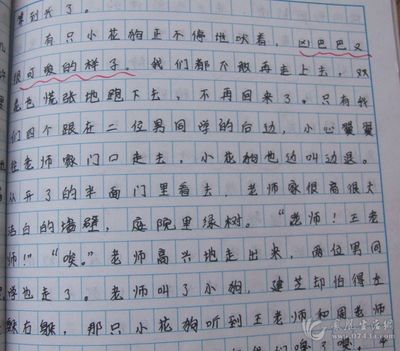 到我了。
有只小花狗正不停地吠着，凶巴巴又
很可爱的样子。我们都不敢再走上去，双
慌张地跑下去，不再回来了。只有我
们四个跟在二位男同学的后边，小心翼翼
往老师家门口走去，小花狗也边叫边退。
从开了的半面门里看去，老师家很高很大
洁白的墙壁，庭院里绿树。“老师！王老
师！”“唉。”老师高兴地走出来，两位男同
学也走了。老师叫了小狗，建芝却怕得左
躲右躲，那只小花狗听到王老师和周老师